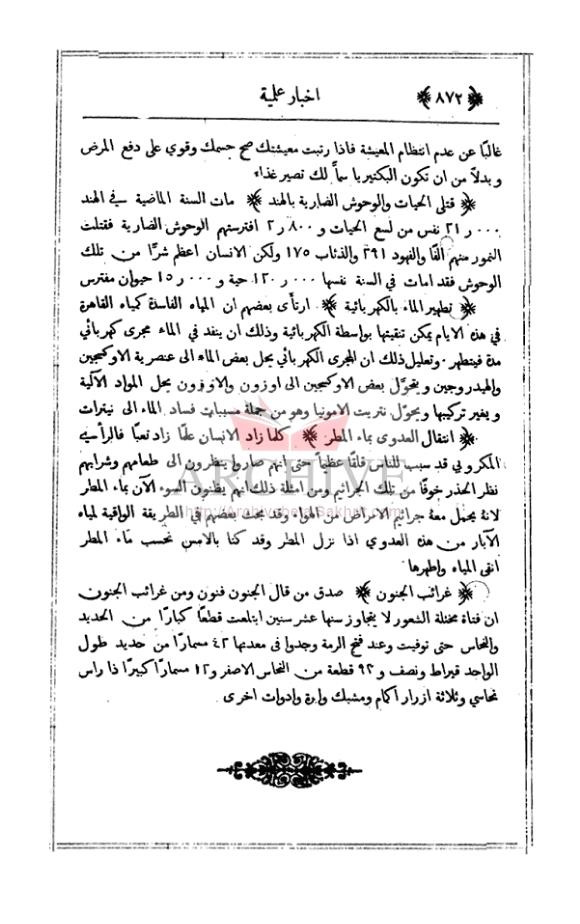 ﴿ ٨٧٢ ﴾ اخبار علمية
غالبًا عن عدم انتظام المعيشة فاذا رتبت معيشتك صح جسمك وقوي على دفع المرض
وبدلاً من ان تكون البكتيريا سماً لك تصير غذاءً
﴿ قتلى الحيات والوحوش الضارية بالهند ﴾ مات السنة الماضية في الهند
٢١٫٠٠٠ نفس من لسع الحيات و ٢٫٨٠٠ افترستهم الوحوش الضارية فقتلت
النمور منهم الفًا والفهود ٢٩١ والذئاب ١٧٥ ولكن الانسان اعظم شرًا من تلك
الوحوش فقد امات في السنة نفسها ١٢٠٫٠٠٠ حية و ١٥٫٠٠٠ حيوان مفترس
﴿ تطهير الماء بالكهربائية ﴾ ارتأى بعضهم ان المياه الفاسدة كمياه القاهرة
في هذه الايام يمكن تنقيتها بواسطة الكهربائية وذلك ان ينفد في الماء مجرى كهربائي
مدة فيتطهر ٠ وتعليل ذلك ان المجرى الكهربائي يحل بعض الماء الى عنصرية الاوكسجين
والهيدروجين ويتحوَّل بعض الاوكسجين الى اوزون والاوزون يحل المواد الآلية
ويغير تركيبها ويحوّل نتريت الامونيا وهو من جملة مسببات فساد الماء الى نيترات
﴿ انتقال العدوى بماء المطر ﴾ كلما زاد الانسان علمًا زاد تعبًا فالرأسي
المكروبي قد سبب للناس قلقًا عظيمًا حتى انهم صاروا ينظرون الى طعامهم وشرابهم
نظر الحذر خوفًا من تلك الجراثيم ومن امثلة ذلك انهم يظنون السوء الآن بماء المطر
لانهُ يحمل معهُ جراثيم الامراض من الهواء وقد بحث بعضهم في الطريقة الواقية لمياه
الآبار من هذه العدوي اذا نزل المطر وقد كنا بالامس نحسب ماء المطر
انقى المياه واطهرها
﴿ غرائب الجنون ﴾ صدق من قال الجنون فنون ومن غرائب الجنون
ان فتاة مختلة الشعور لا يتجاوز سنها عشر سنين ابتلعت قطعًا كبارًا من الحديد
والنحاس حتى توفيت وعند فتح الرمة وجدوا في معدتها ٤٢ مسمارًا من حديد طول
الواحد قيراط ونصف و ٩٢ قطعة من النحاس الاصفر و١٢ مسمارًا كبيرًا ذا راس
نحاسي وثلاثة ازرار اكمام ومشبك وابرة وادوات اخرى
ARCHIVE
http://Archivebeta.Sakhrit.com